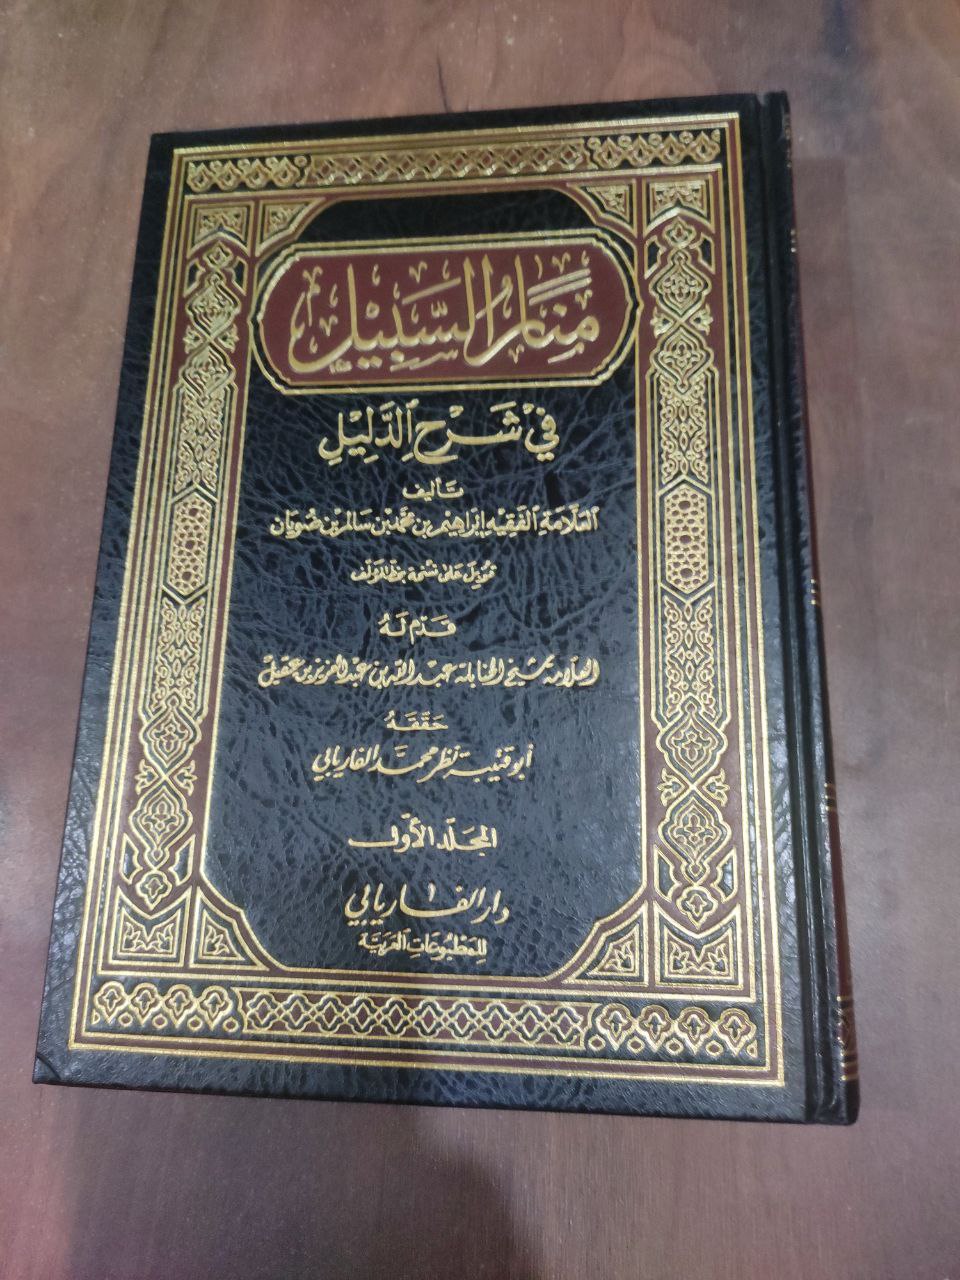 منار السبيل
في شرح الدليل
تأليف
العلامة الفقيه إبراهيم بن محمد بن سالم بن ضويان
قوبل على نسخة بخط المؤلف
قدم له
العلامة شيخ الحنابلة عبد الله بن عبد العزيز بن عقيل
حققه
أبو قتيبة نظر محمد الفاريابي
المجلد الأول
دار الفاريابي
للمطبوعات العربية